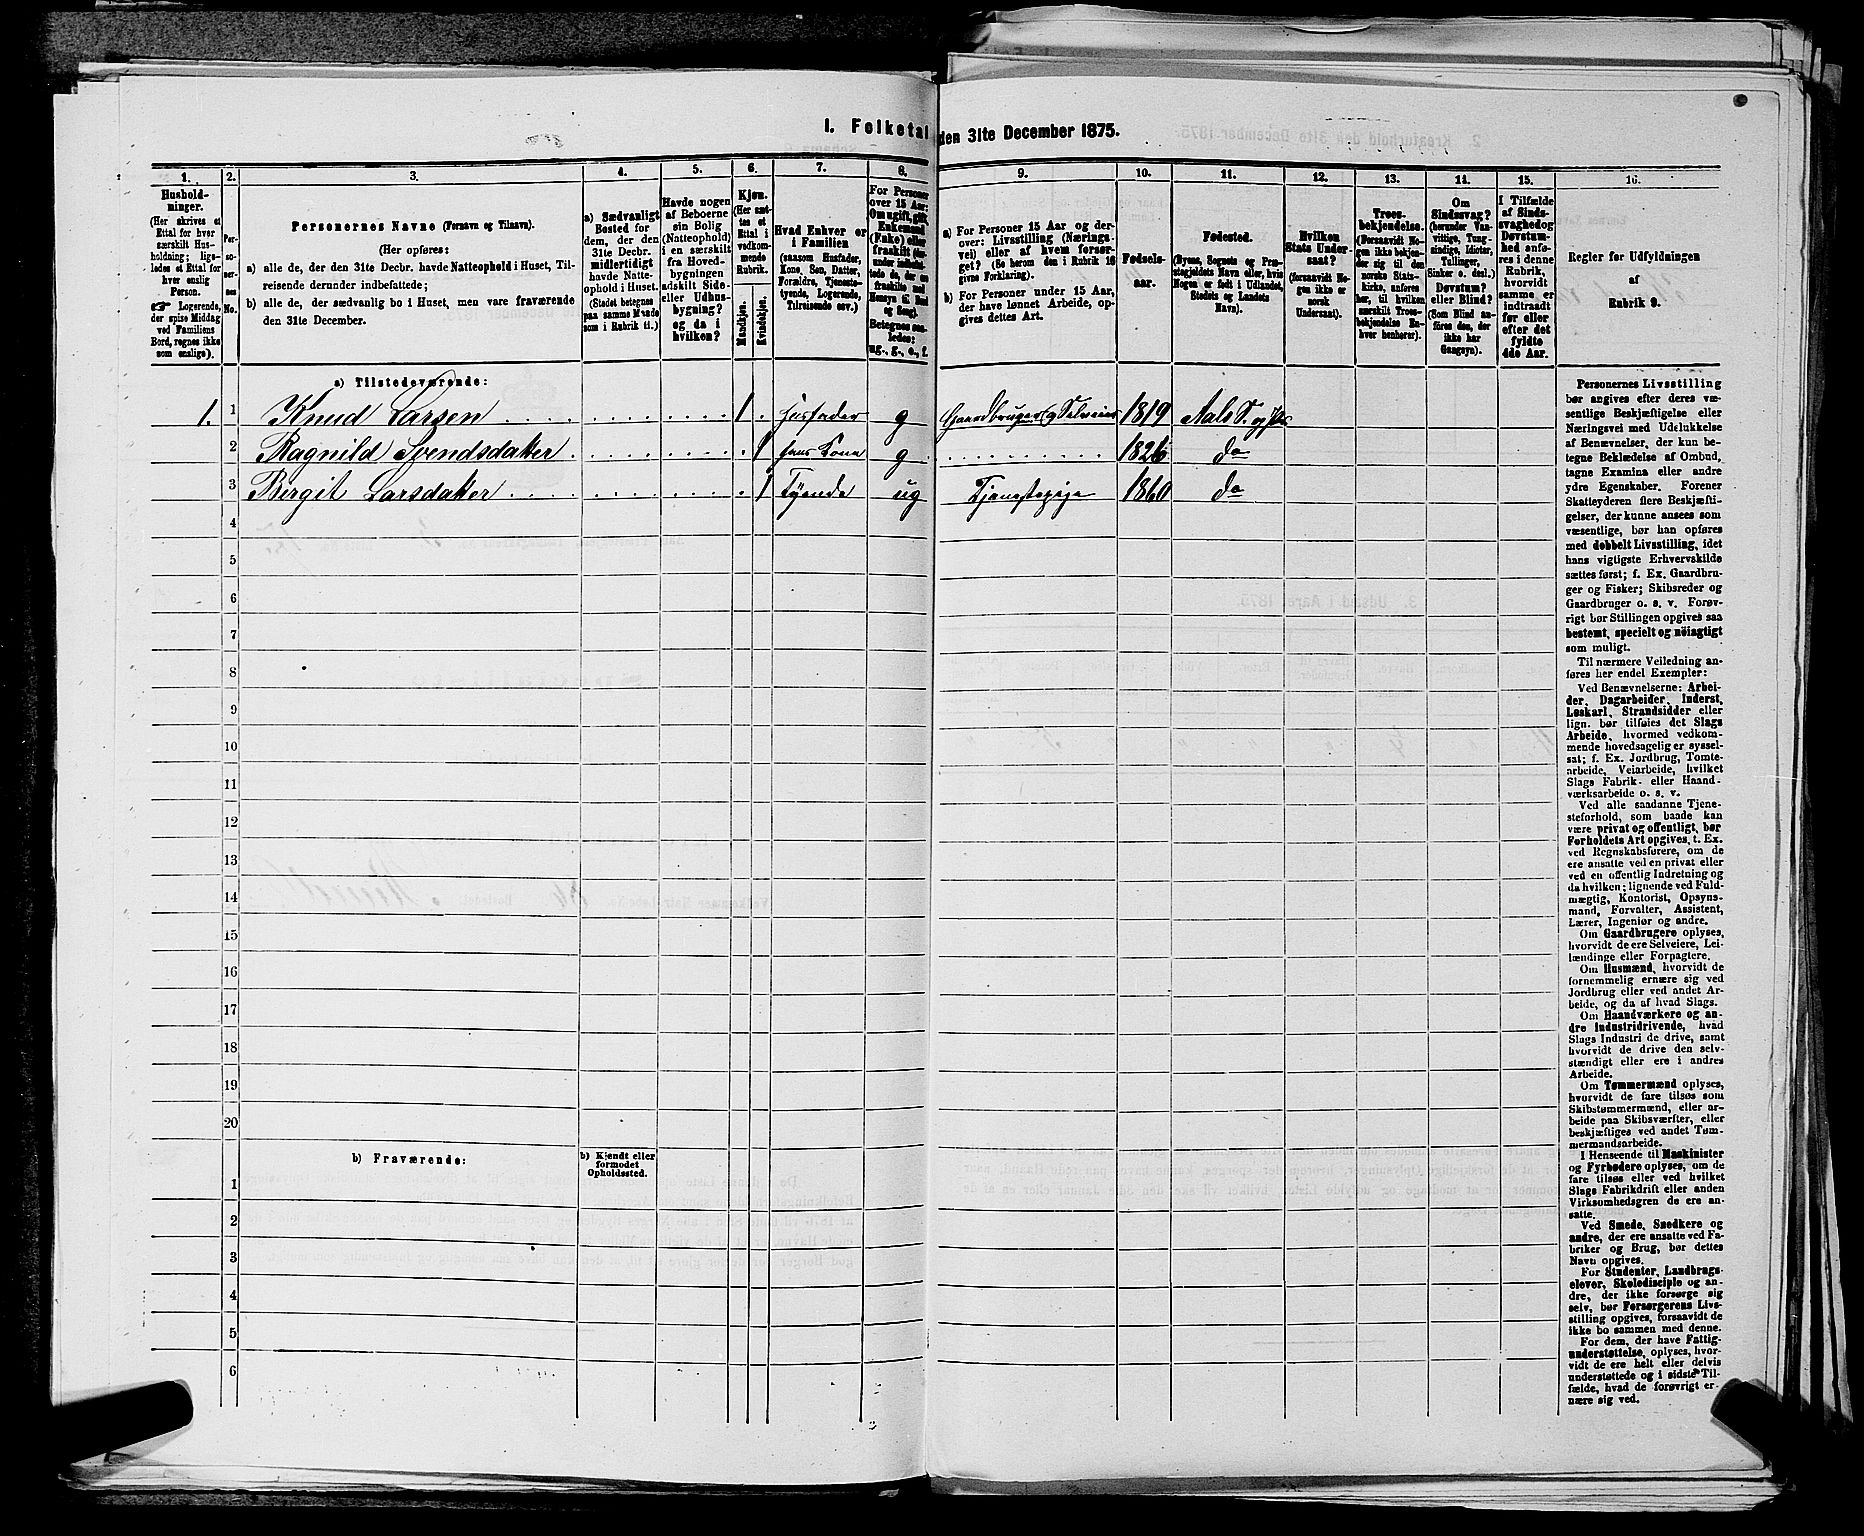 1. Folketal den 31te December 1875.
1. 2. 3. 4. 5. 6. 7. 8. 9. 10. 11. 12. 13. 14. 15. 16.
Hushold-
ninger.
(Her skrives et
Ettal for hver
særskilt Hus-
holdning; lige-
ledes et Ettal for
hver enslig
Person.
☞ Logerende,
der spise Middag
ved Familiens
Bord, regnes ikke
som enslige).
Per-
so-
ner-
nes
No.
Personernes Navne (Fornavn og Tilnavn).
(Her opføres:
a) alle de, der den 31te Decbr. havde Natteophold i Huset, Til-
reisende derunder indbefattede;
b) alle de, der sædvanlig bo i Huset, men vare fraværende
den 31te December.
a) Sædvanligt
Bosted for
dem, der den
31te Decbr.
midlertidigt
havde Natte-
ophold i Huset.
(Stedet betegnes
paa samme Maade
som i Rubrik 11.)
Havde nogen
af Beboerne
sin Bolig
(Natteophold)
i en særskilt
fra Hoved-
bygningen
adskilt Side-
eller Udhus-
bygning?
og da i
hvilken?
Kjøn.
(Her sæt-
tes et
Ettal i
vedkom-
mende
Rubrik.
Mandkjøn.
Kvindekjøn.
Hvad Enhver er
i Familien
(saasom Husfader,
Kone, Søn, Datter,
Forældre, Tjeneste-
tyende, Logerende,
Tilreisende osv.)
For Personer
over 15 Aar:
Om ugift, gift,
Enkemand
(Enke) eller
fraskilt
Betegnes saa-
ledes:
ug., g., e., f.
a) For Personer 15 Aar og der-
over: Livsstilling (Nærings-
vei) eller af hvem forsør-
get? (Se herom den i Rubrik 16
givne Forklaring).
b) For Personer under 15 Aar,
der have lønnet Arbeide, op-
gives dettes Art.
Fødsels-
aar.
Fødested.
(Byens, Sognets og Præ-
stegjeldets Navn eller, hvis
Nogen er født i Udlandet,
Stedets og Landets
Navn).
Hvilken
Stats Under-
saat?
(forsaavidt No-
gen ikke er
norsk
Undersaat).
Troes-
bekjendelse.
(Forsaavidt No-
gen ikke bekjen-
der sig til den
norske Stats-
kirke, anføres
her, til hvilken
særskilt Troes-
bekjendelse En-
hver henhører).
Om
Sindssvag?
(herunder Van-
vittige, Tung-
sindige, Idioter,
Tullinger,
Sinker o. desl.)
Døvstum?
eller Blind?
(Som Blind an-
føres den, der
ikke har
Gangsyn).
I Tilfælde
af Sinds-
svaghed og
Døvstum-
hed anfø-
res i denne
Rubrik,
hvorvidt
samme er
indtraadt
før eller
efter det
fyldte
4de Aar.
Regler for Udfyldningen
af
Rubrik 9.
a) Tilstedeværende:
1. 1 Knud Larsen 1 husfader g Gaardbruger og Selveier 1819 Aals S. og
2 Ragnild Svendsdatter 1 hans Kone g 1826 do
3 Birgit Larsdatter 1 Tyende ug Tjenestepige 1860 do
4
5
6
7
8
9
10
11
12
13
14
15
16
17
18
19
20
b) Fraværende:
b) Kjendt eller
formodet
Opholdssted.
1
2
3
4
5
6
Personernes Livsstilling
bør angives efter deres væ-
sentlige Beskjæftigelse eller
Næringsvei med Udelukkelse
af Benævnelser, der kun be-
tegne Beklædelse af Ombud,
tagne Examina eller andre
ydre Egenskaber. Forener
Skatteyderen flere Beskjæfti-
gelser, der kunne ansees som
væsentlige, bør han opføres
med dobbelt Livsstilling, idet
hans vigtigste Erhvervskilde
sættes først; f. Ex. Gaardbru-
ger og Fisker; Skibsreder og
Gaardbruger o. s. v. Forøv-
rigt bør Stillingen opgives saa
bestemt, specielt og nöiagtigt
som muligt.
Til nærmere Veiledning an-
føres her endel Exempler:
Ved Benævnelserne: Arbei-
der, Dagarbeider, Inderst,
Løskarl, Strandsidder eller
lign. bør tilføies det Slags
Arbeide, hvormed vedkom-
mende hovedsagelig er syssel-
sat; f. Ex. Jordbrug, Tomte-
arbeide, Veiarbeide, hvilket
Slags Fabrik- eller Haand-
værksarbeide o. s. v.
Ved alle saadanne Tjene-
steforhold, som baade kan
være privat og offentligt, bør
Forholdets Art opgives, t. Ex.
ved Regnskabsførere, om de
ere ansatte ved en privat eller
ved en offentlig Indretning og
da hvilken; lignende ved Fuld-
mægtig, Kontorist, Opsyns-
mand, Forvalter, Assistent,
Lærer, Ingeniør og andre.
Om Gaardbrugere oplyses,
hvorvidt de ere Selveiere, Lei-
lændinge eller Forpagtere.
Om Husmænd, hvorvidt de
fornemmelig ernære sig ved
Jordbrug eller ved andet Ar-
beide, og da af hvad Slags.
Om Haandværkere og an-
dre Industridrivende, hvad
Slags Industri de drive, samt
hvorvidt de drive den selv-
stændigt eller ere i andres
Arbeide.
Om Tømmermænd oplyses,
hvorvidt de fare tilsøs som
Skibstømmermænd, eller ar-
beide paa Skibsværfter, eller
beskjæftiges ved andet Tøm-
mermandsarbeide.
I Henseende til Maskinister
og Fyrbødere oplyses, om de
fare tilsøs eller ved hvilket
Slags Fabrikdrift eller anden
Virksomhedsgren de ere an-
satte.
Ved Smede, Snedkere og
andre, der ere ansatte ved Fa-
briker og Brug, bør dettes
Navn opgives.
For Studenter, Landbrugs-
elever, Skoledisciple og an-
dre, der ikke forsørge sig
selv, bør Forsørgerens Livs-
stilling opgives, forsaavidt de
ikke bo sammen med denne.
For dem, der have Fattig-
understøttelse, oplyses, hvor-
vidt de ere helt eller delvis
understøttede og i sidste Til-
fælde, hvad de forøvrigt er-
nære sig ved.